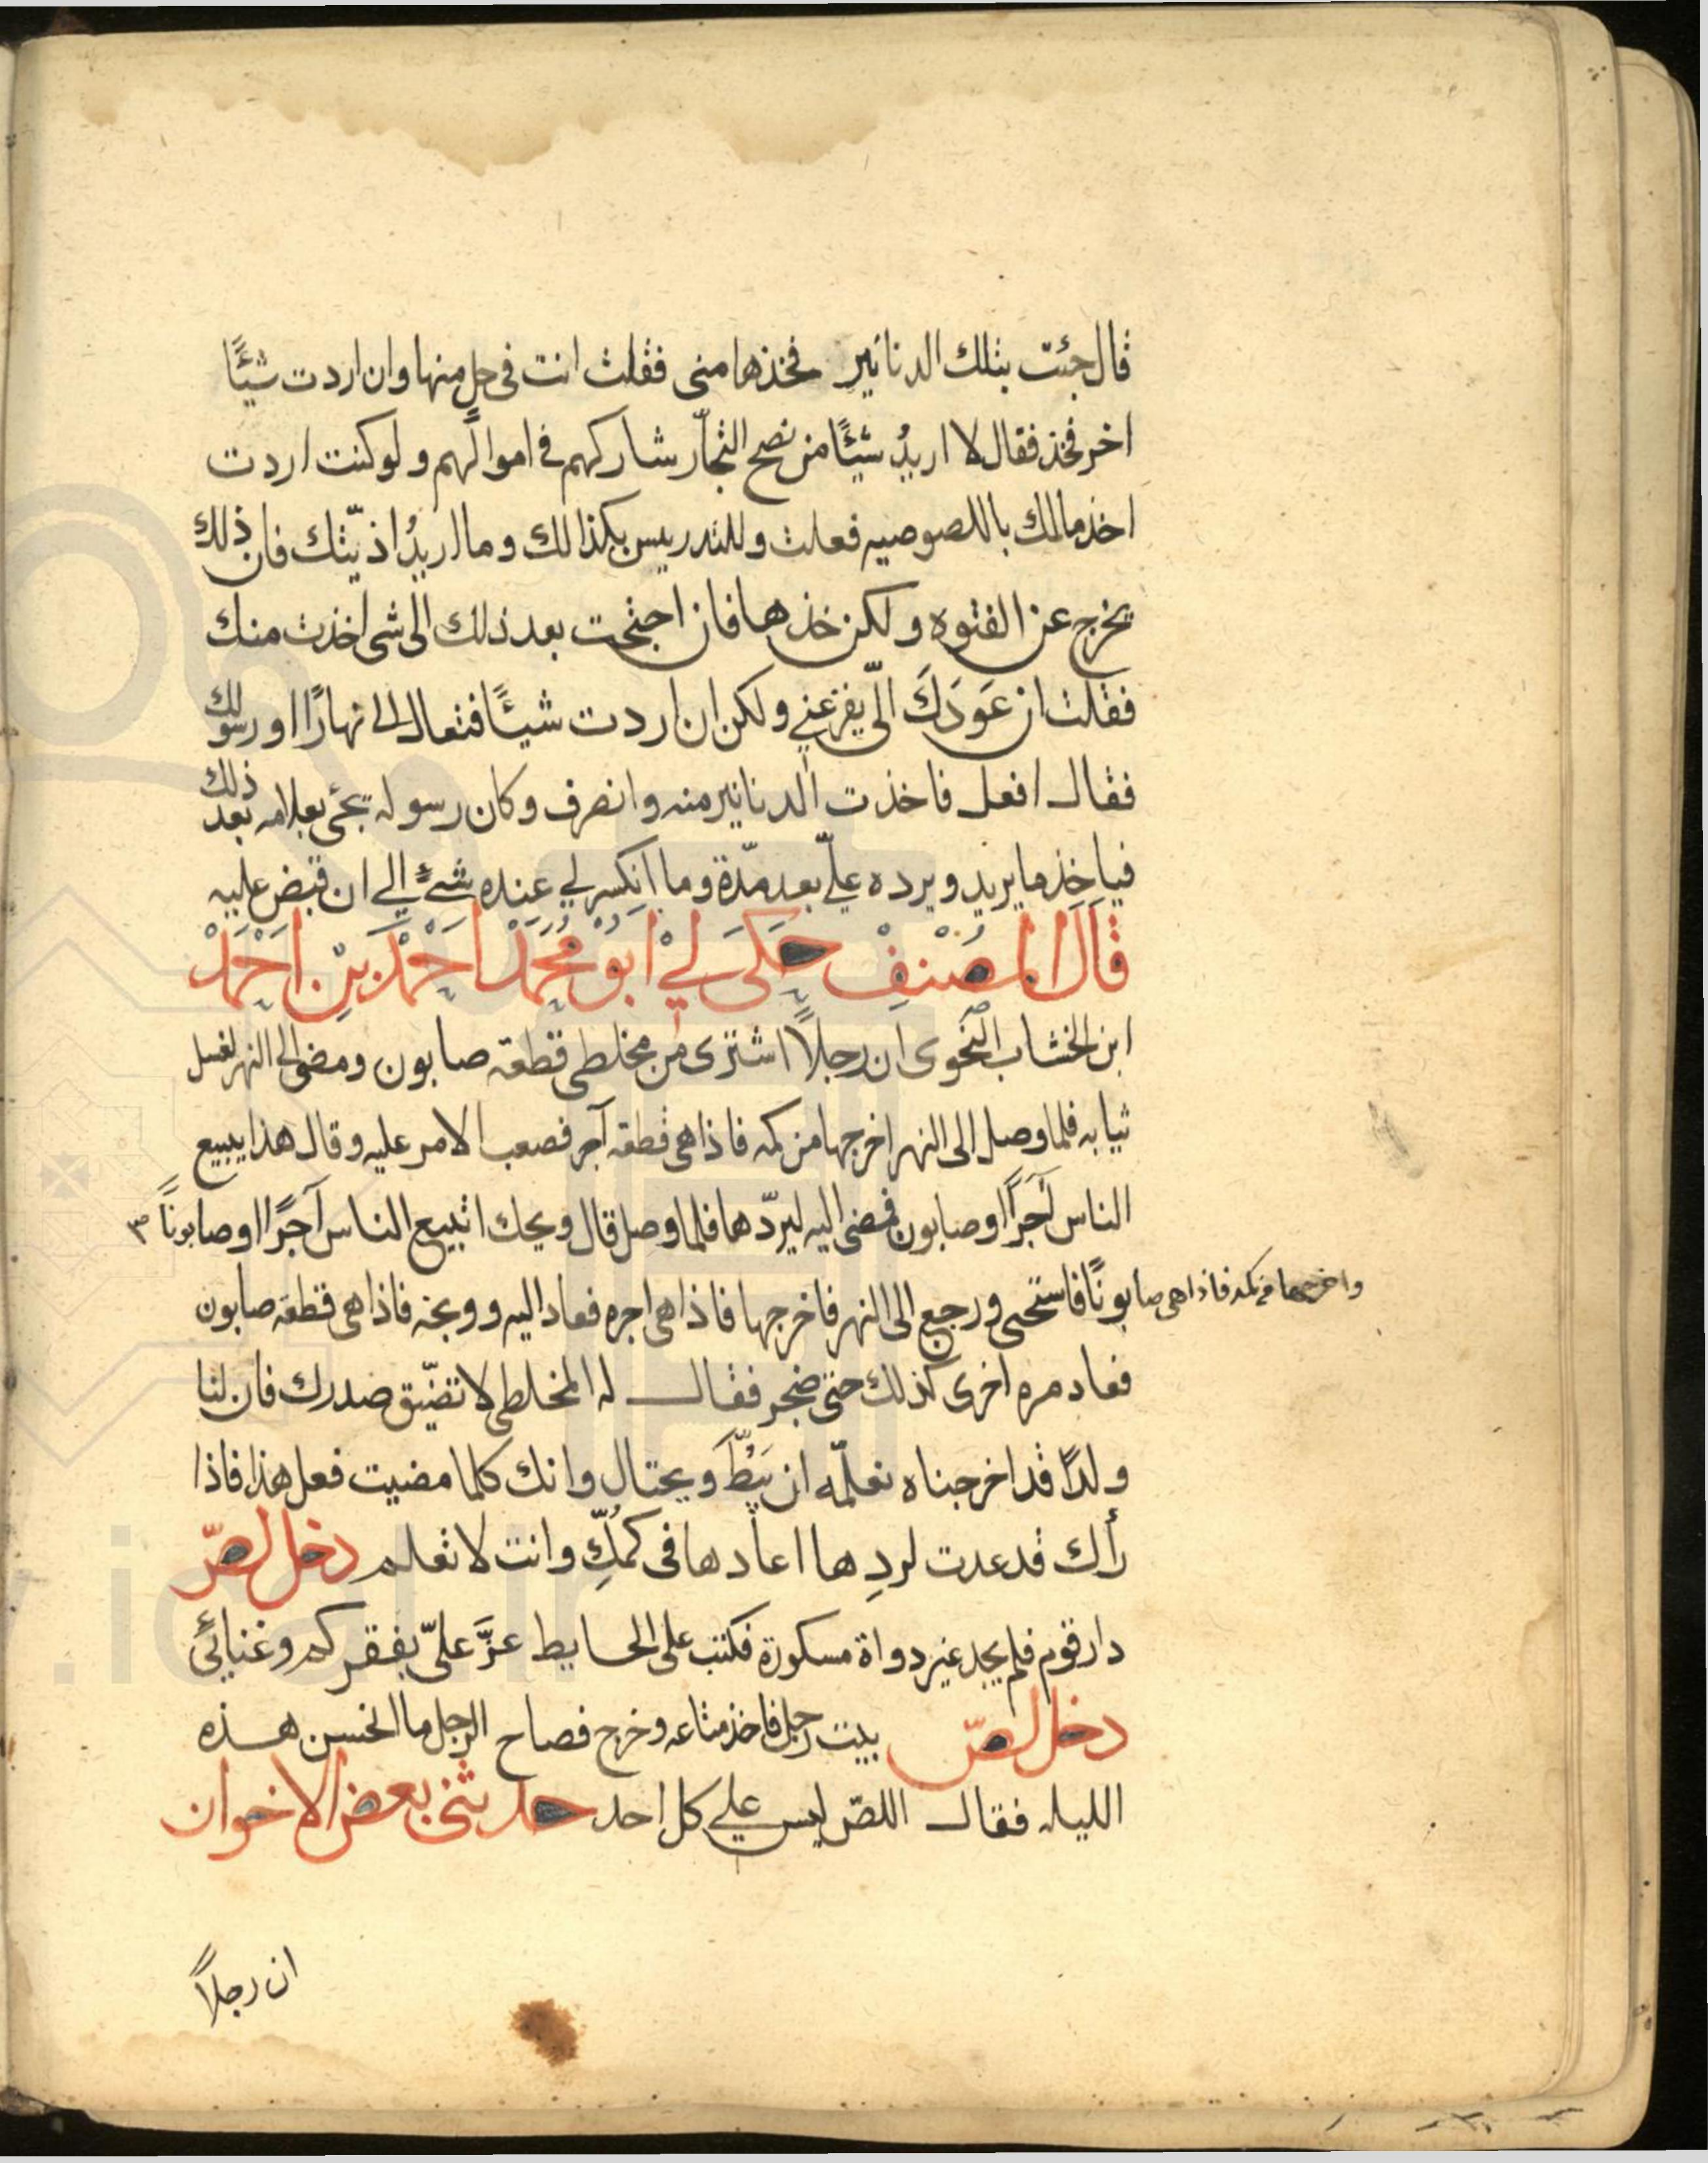 قال جئت بتلك الدنانير فخذها منى فقلت انت فى حل منها وان اردت شيئًا
اخر فخذ فقال لا اريدُ شيئًا من نصح التجّار شاركهم فى اموالهم ولو كنت اردت
اخذ مالك باللصوصيه فعلت وللتدريس بكذا لك وما اريدُ اذيّتك فان ذلك
يخرج عن الفتوه ولكن خذها فان احتجت بعد ذلك الى شى اخذت منك
فقلت ان عَودَكَ الىّ يفزعنى ولكن ان اردت شيئًا فتعال الى نهارًا او رسولك
فقال افعل فاخذت الدنانير منه وانصرف وكان رسوله يجئ بعلامه بعد ذلك
فياخذ ما يريد ويرده علىّ بعد مدّة وما انكسر لى عنده شئ الى ان قبض عليه
قَالَ المُصَنِفْ حَكَى لِيْ ابُوْ مُحَمَدْ احْمَدْ بِنْ احْمَدْ
ابن الخشاب النحوى ان رجلاً اشترى من مخلطى قطعة صابون ومضى الى النهر لغسل
ثيابه فلما وصل الى النهر اخرجها من كمه فاذا هى قطعة آجر فصعب الامر عليه وقال هذا يبيع
الناس آجرًا او صابون فمضى اليه ليردّها فلما وصل قال ويحك اتبيع الناس آجرًا او صابونًا ٣
واخرجها من كمه فاذا هى صابونًا فاستحى ورجع الى النهر فاخرجها فاذا هى اجره فعاد اليه ووبخه فاذا هى قطعة صابون
فعاد مره اخرى كذلك حتى ضجر فقال له المخلطى لا تضيّق صدرك فان لنا
ولدًا قد اخرجناه نعلّمه ان يَبُطّ ويحتال وانك كلما مضيت فعل هذا فاذا
رأك قد عدت لردِها اعادها فى كمُكِّ وانت لا تعلم دخل لصّ
دار قوم فلم يجد غير دواة مسكورة فكتب على الحايط عزَّ علىّ بفقركم وغنائى
دخل لصّ بيت رجل فاخذ متاعه وخرج فصاح الرجل ما انحسن هذه
الليله فقال اللصّ ليس على كل احد حدثنى بعض الاخوان
ان رجلاً